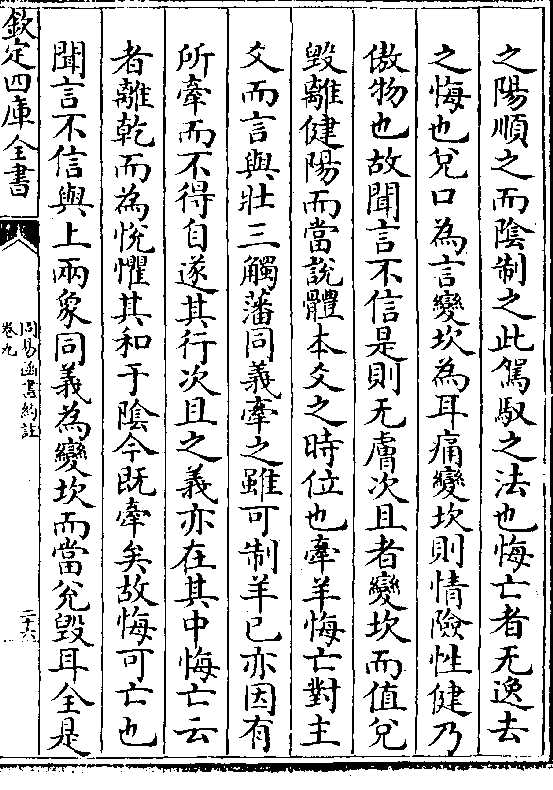 之陽順之而陰制之此駕馭之法也悔亡者无逸去
之悔也兌口為言變坎為耳痛變坎則情險性健乃
傲物也故聞言不信是則无膚次且者變坎而值兌
毀離健陽而當說體本爻之時位也牽羊悔亡對主
爻而言與壯三觸藩同義牽之雖可制羊已亦因有
所牽而不得自遂其行次且之義亦在其中悔亡云
者離乾而為悅懼其和于陰今既牽矣故悔可亡也
聞言不信與上兩象同義為變坎而當兌毀耳全是
欽定四庫全書
周易函書約註
卷九
二十六